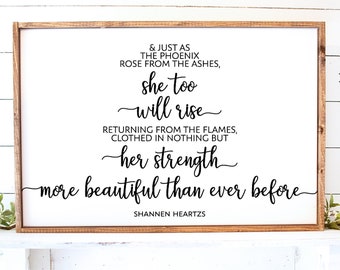 & JUST AS
THE PHOENIX
ROSE FROM THE ASHES,
she too
will rise
RETURNING FROM THE FLAMES,
CLOTHED IN NOTHING BUT
her strength
more beautiful than ever before
SHANNEN HEARTZS